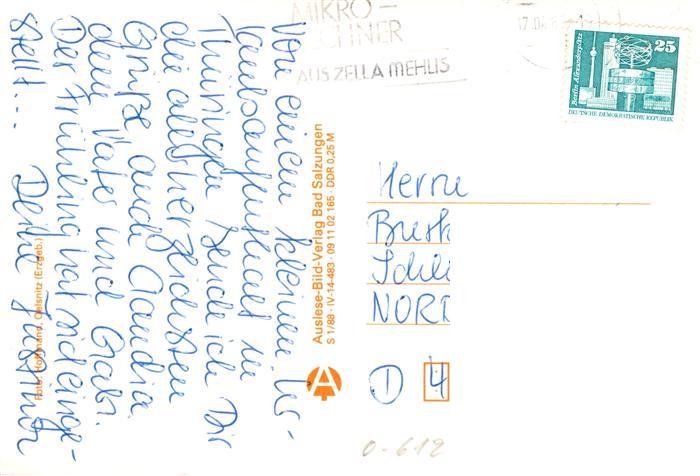 MIKRO-
AUS ZELLA MEHLIS
25
Berlin, Alexanderplatz
DEUTSCHE DEMOKRATISCHE REPUBLIK
Von einem kleinen Ur-
laubsaufenthalt in
Thüringen sende ich Dir
die allerherzlichsten
Grüße, auch Claudia
dem Vater und Gabi.
Der Frühling hat sich einge-
stellt... Deine
Auslese-Bild-Verlag Bad Salzungen
S 1/88 · IV-14-483 · 09 11 02 165 · DDR 0,25 M
Foto: Hoffmann, Oelsnitz (Erzgeb.)
Herrn
NORD
D 4
0-612